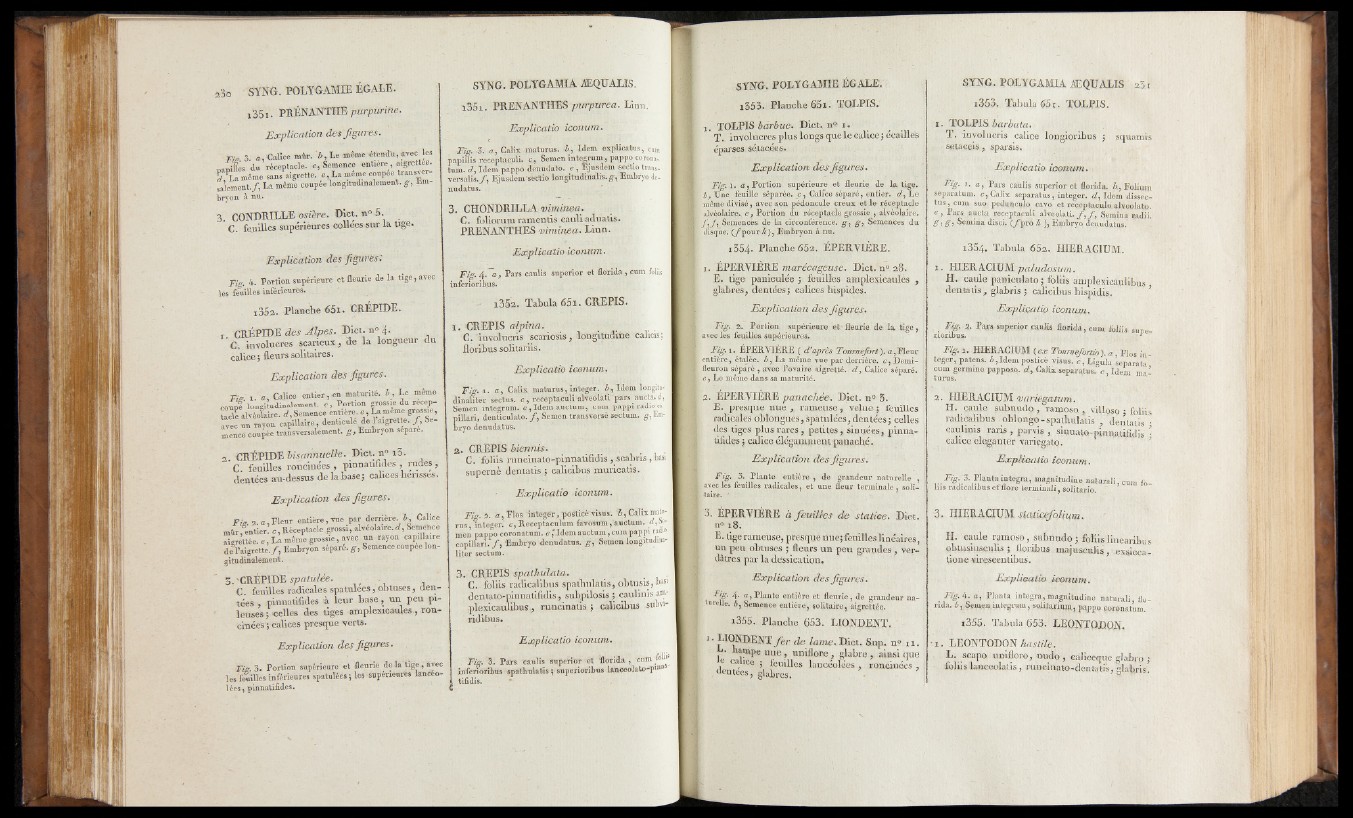 230 SYNG. POLYGAMIE ÉGALE.
1351. PRÉNANTHE purpurine.
Explication des figures.
Fig. 3. a, Calice mûr. b, Le même étendu, avec les
papilles du réceptacle. c, Semence entière, aigrettée.
d, La même sans aigrette. e, La même coupée transver-
salement. f, La même coupée longitudinalement. g, Em-
bryon à nu.
3. CONDRILLE osière. Dict. n° 5.
C. feuilles supérieures collées sur la tige.
Explication des figures.
Fig. 4. Portion supérieure et fleurie de la tige, avec
les feuilles inférieures.
1352. Planche 651. CRÉPIDE.
1. CRÉPIDE des Alpes. Dict. n° 4.
C. involucres scarieux, de la longueur du
calice; fleurs solitaires.
Explication des figures.
Fig. 1. a, Calice entier, en maturité. b, Le même
coupé longitudinalement. c, Portion grossie du récep-
tacle alvéolaire. d, Semence entière. e, La même grossie,
avec un rayon capillaire, denticulé de l'aigrette. f, Se-
mence coupée transversalement. g, Embryon séparé.
2. CRÉPIDE bisannuelle. Dict. n° 15.
C. feuilles roncinées, pinnatifides, rudes,
dentées au-dessus de la base; calices hérissés.
Explication des figures.
Fig. 2. a, Fleur entière, vue par derrière. b, Calice
mûr, entier. c, Réceptacle grossi, alvéolaire. d, Semence
aigrettée. e, La même grossie, avec un rayon capillaire
de l'aigrette. f, Embryon séparé. g, Semence coupée lon-
gitudinalement.
3. CRÉPIDE spatulée.
C. feuilles radicales spatulées, obtuses, den-
tées, pinnatifides à leur base, un peu pi-
leuses; celles des tiges amplexicaules, ron-
cinées; calices presque verts.
Explication des figures.
Fig. 3. Portion supérieure et fleurie de la tige, avec
les feuilles inférieures spatulées; les supérieures lancéo-
lées, pinnatifides.
SYNG. POLYGAMIA ÆQUALIS.
1351. PRENANTHES purpurea. Linn.
Explicatio iconum.
Fig. 3. a, Calix maturus. b, Idem explicatus, cum
papillis receptaculi. c, Semen integrum, pappo corona-
tum. d, Idem pappo denudato. e, Ejusdem sectio trans-
versalis. f, Ejusdem sectio longitudinalis. g, Embryo de-
nudatus.
3. CHONDRILLA viminea.
C. foliorum ramentis cauli adnatis.
PRENANTHES viminea. Linn.
Explicatio iconum.
Fig. 4. a, Pars caulis superior et florida, cum foliis
inferioribus.
1352. Tabula 651. CREPIS.
1. CREPIS alpina.
C. involucris scariosis, longitudine calicis;
floribus solitariis.
Explicatio iconum.
Fig. 1. a, Calix maturus, integer. b, Idem longitu-
dinaliter sectus. c, receptaculi alveolati pars aucta. d,
Semen integrum. e, Idem auctum, cum pappi radio ca-
pillari, denticulato. f, Semen transversè sectum. g, Em-
bryo denudatus.
2. CREPIS biennis.
C. foliis runcinato-pinnatifidis, scabris, basi
supernè dentatis; calicibus muricatis.
Explicatio iconum.
Fig. 2. a, Flos integer, posticè visus. b, Calix matu-
rus, integer. c, Receptaculum favosum, auctum. d, Se-
men pappo coronatum. e, Idem auctum, cum pappi radio
capillari. f, Embryo denudatus. g, Semen longitudina-
liter sectum.
3. CREPIS spathulata.
C. foliis radicalibus spathulatis, obtusis, basi
dentato-pinnatifidis, subpilosis; caulinis am-
plexicaulibus, runcinatis; calicibus subvi-
ridibus.
Explicatio iconum.
Fig. 3. Pars caulis superior et florida, cum foliis
inferioribus spathulatis; superioribus lanceolato-pinna-
tifidis.
SYNG. POLYGAMIE ÉGALE.
1353. Planche 651. TOLPIS.
1. TOLPIS barbue. Dict. n° 1.
T. involucres plus longs que le calice; écailles
éparses sétacées.
Explication des figures.
Fig. 1. a, Portion supérieure et fleurie de la tige.
b, Une feuille séparée. c, Calice séparé, entier. d, Le
même divisé, avec son pédoncule creux et le réceptacle
alvéolaire. e, Portion du réceptacle grossie, alvéolaire.
f, f, Semences de la circonférence. g, g, Semences du
disque. (f pour h), Embryon à nu.
1354. Planche 652. ÉPERVIÈRE.
1. ÉPERVIÈRE marécageuse. Dict. n° 28.
E. tige paniculée; feuilles amplexicaules,
glabres, dentées; calices hispides.
Explication des figures.
Fig. 2. Portion supérieure et fleurie de la tige,
avec les feuilles supérieures.
Fig. 1. ÉPERVIÈRE (d'après Tournefort). a, Fleur
entière, étalée. b, La même vue par derrière. c, Demi-
fleuron séparé, avec l'ovaire aigretté. d, Calice séparé.
e, Le même dans sa maturité.
2. ÉPERVIÈRE panachée. Dict. n° 5.
E. presque nue, rameuse, velue; feuilles
radicales oblongues, spatulées, dentées; celles
des tiges plus rares, petites, sinuées, pinna-
tifides; calice élégamment panaché.
Explication des figures.
Fig. 3. Plante entière, de grandeur naturelle,
avec les feuilles radicales, et une fleur terminale, soli-
taire.
3. ÉPERVIÈRE à feuilles de statice. Dict.
n° 18.
E. tige rameuse, presque nue; feuilles linéaires,
un peu obtuses; fleurs un peu grandes, ver-
dâtres par la dessication.
Explication des figures.
Fig. 4. a, Plante entière et fleurie, de grandeur na-
turelle. b, Semence entière, solitaire, aigrettée.
1355. Planche 653. LIONDENT.
1. LIONDENT fer de lame. Dict. Sup. n° 11.
L. hampe nue, uniflore, glabre, ainsi que
le calice; feuilles lancéolées, roncinées,
dentées, glabres.
SYNG. POLYGAMIA ÆQUALIS 231
1353. Tabula 651. TOLPIS.
1. TOLPIS barbata.
T. involucris calice longioribus; squamis
setaceis, sparsis.
Explicatio iconum.
Fig. 1. a, Pars caulis superior et florida. b, Folium
separatum. c, Calix separatus, integer. d, Idem dissec-
tus, cum suo pedunculo cavo et receptaculo alveolato.
e, Pars aucta receptaculi alveolati. f, f, Semina radii.
g, g, Semina disci. (f pro h), Embryo denudatus.
1354. Tabula 652. HIERACIUM.
1. HIERACIUM paludosum.
H. caule paniculato; foliis amplexicaulibus,
dentatis, glabris; calicibus hispidis.
Explicatio iconum.
Fig. 2. Pars superior caulis florida, cum foliis supe-
rioribus.
Fig. 1. HIERACIUM (ex Tournefortio). a, Flos in-
teger, patens. b, Idem posticè visus. c, Ligula separata,
cum germine papposo. d, Calix separatus. e, Idem ma-
turus.
2. HIERACIUM variegatum.
H. caule subnudo, ramoso, villoso; foliis
radicalibus oblongo-spathulatis, dentatis;
caulinis raris, parvis, sinuato-pinnatifidis;
calice eleganter variegato.
Explicatio iconum.
Fig. 3. Planta integra, magnitudine naturali, cum fo-
liis radicalibus et flore terminali, solitario.
3. HIERACIUM staticefolium.
H. caule ramoso, subnudo; foliis linearibus
obtusiusculis; floribus majusculis, exsicca-
tione virescentibus.
Explicatio iconum.
Fig. 4. a, Planta integra, magnitudine naturali, flo-
rida. b, Semen integrum, solitarium, pappo coronatum.
1355. Tabula 653. LEONTODON.
1. LEONTODON hastile.
L. scapo unifloro, nudo, caliceque glabro;
foliis lanceolatis, runcinato-dentatis, glabris.